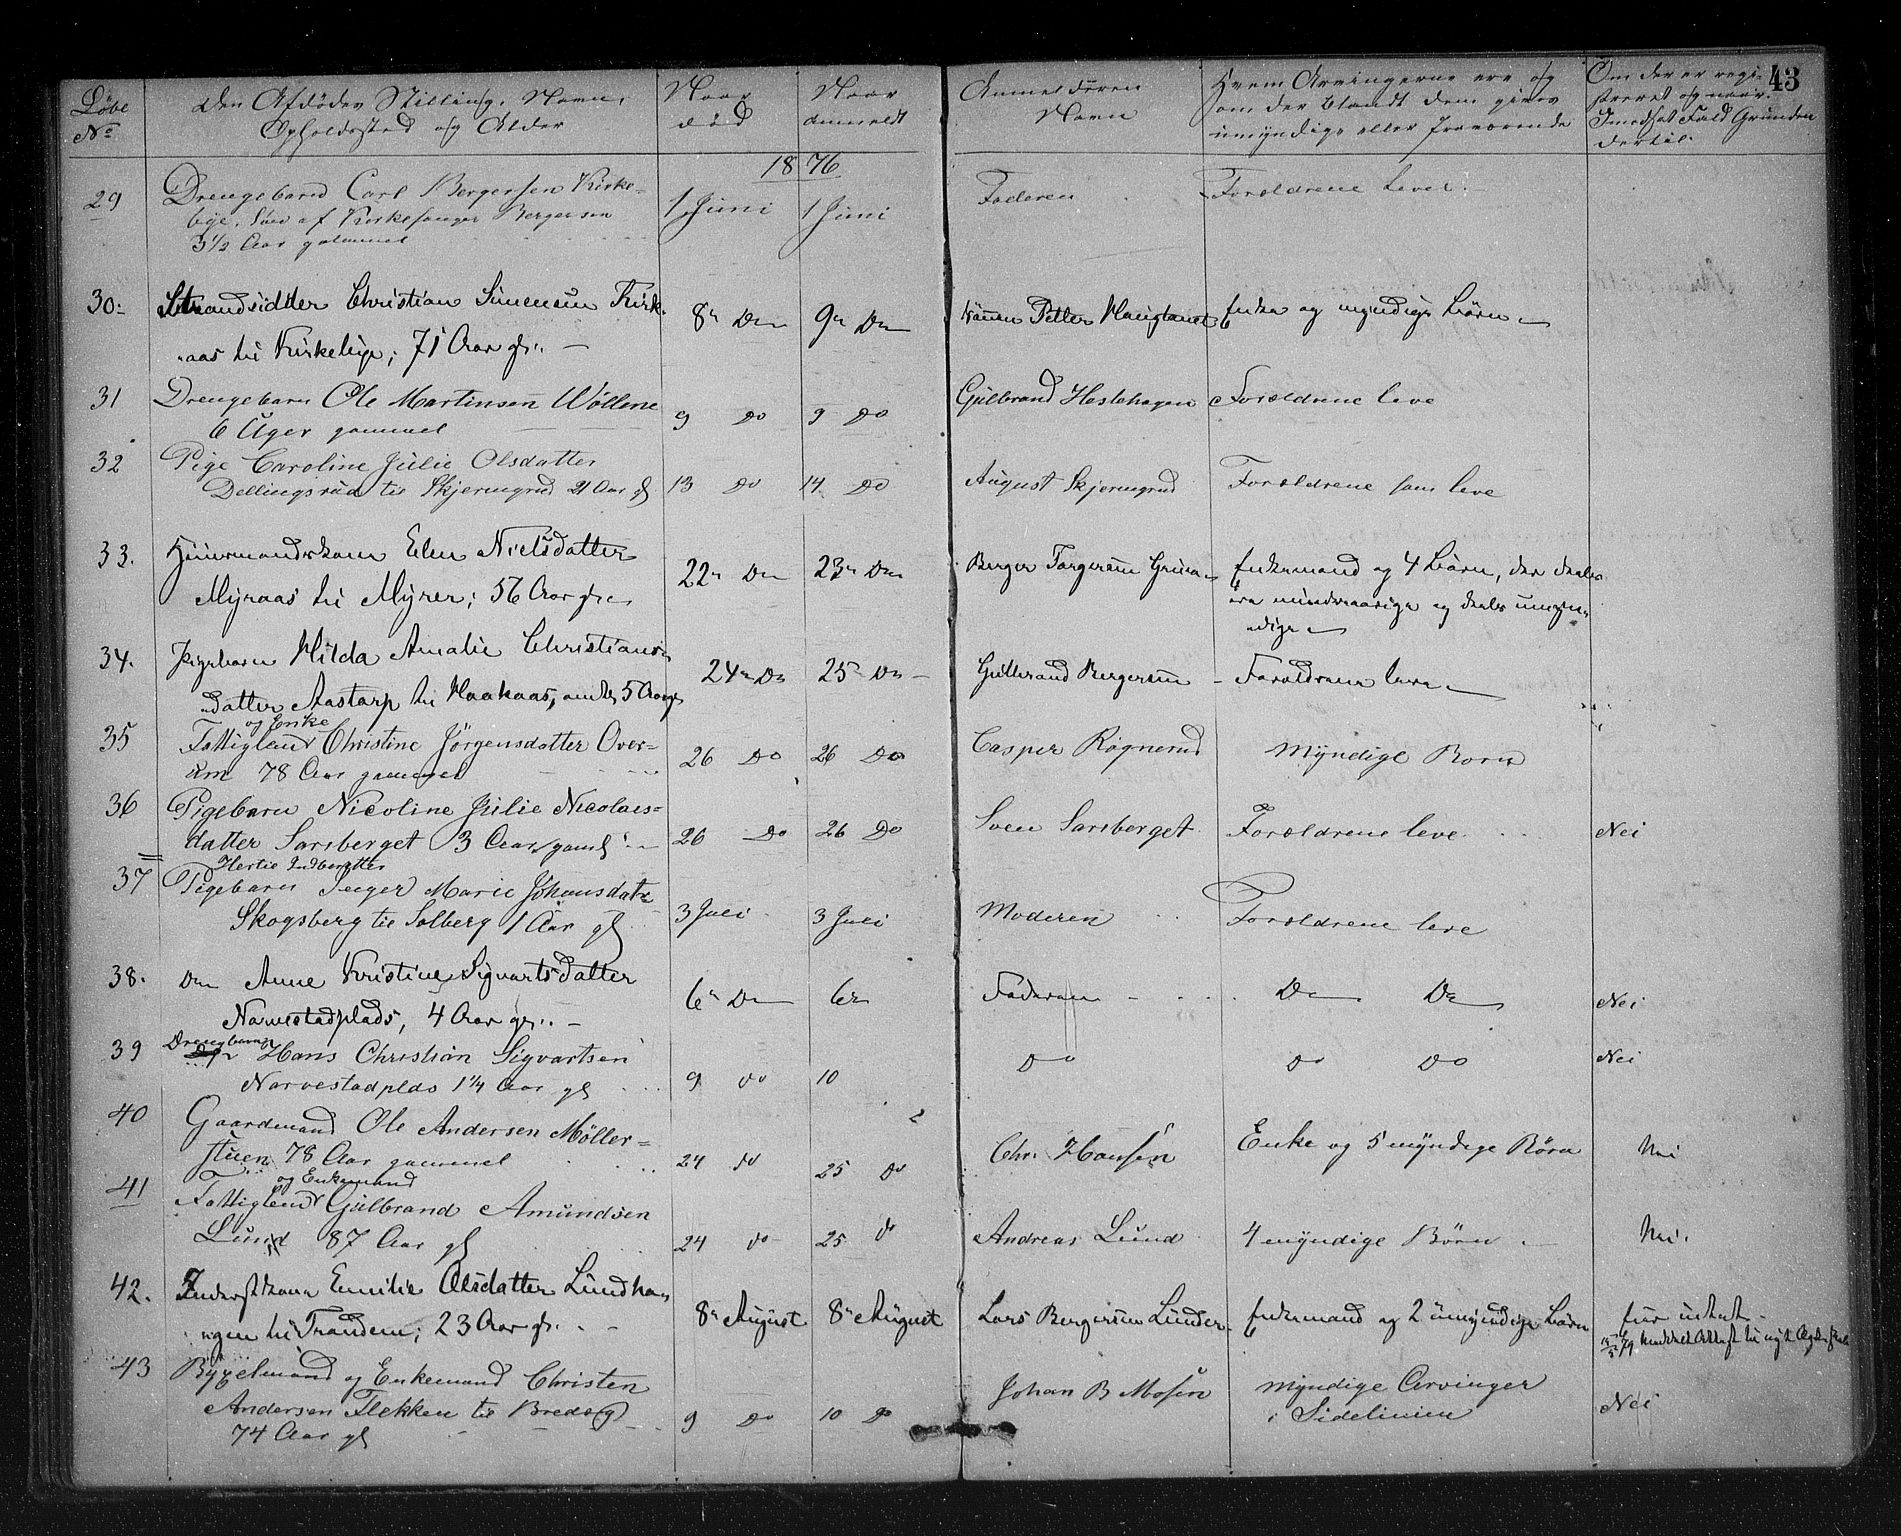 43
Løbe No
Den Afdødes Stilling, Navn, Opholdssted og Alder
Naar død
Naar anmeldt
Anmelderen Navn
Hvem Arvingerne ere og om der blandt dem gives umyndige eller fraværende
Om der er regi-
streret og naar.
I modsat Fald Grunden
dertil.
1876
29 Drengebarn Carl Bergersen Kirke- 1 Juni 1 Juni Faderen Forældrene lever.
bye. Søn af Kirkesanger Bergersen
3½ Aar gammel
30. Strandsidder Christian Simensen Kirk- 8de Do 9de Do Petter Haugland Enke og myndige Børn
aas til Kirkebye; 71 Aar gl.
31 Drengebarn Ole Martinsen Wøllene 9 Do 9 Do Gulbrand Hestehagen Forældrene leve
6 Uger gammel
32 Pige Caroline Julie Olsdatter
Dellingsrud til Skjerengrud 21 Aar gl 13 Do 14 Do August Skjerengrud Forældrene som leve
33. Huusmandskone Elen Nielsdatter 22de Do 23de Do Berger Torgersen Enkemand og 4 Børn, der deels
Myraas til Myrer; 56 Aar gl. ere mindreaarige og deels umyn-
dige
34. Pigebarn Hilda Amalie Christians- 24de Do 25de Do Gulbrand Bergersen Forældrene leve
datter Aastorp til Haakaas, 5 Aar gl
og Enke
35 Fattiglem Christine Jörgensdatter Over- 26 Do 26 Do Casper Rognerud Myndige Born
78 Aar gammel
36 Pigebarn Nicoline Julie Nicolais- Sven Sarsberget Forældrene leve. Nei
datter Sarsberget 3 Aar gaml 26 Do 26 Do
37 Pigebarn Inger Marie Johansdatr 3 Juli 3 Juli Moderen Forældrene leve
Skogsberg til Solberg 1 Aar gl
38. Do Anne Kristine Sigvartsdatter 6te Do 6te Faderen Do Do Nei
Narvestadplads, 4 Aar gl.
Drengebarn
39 Hans Christian Sigvartsen Do Do Do Nei
Narvestadplds 1¼ Aar gl 9 do 10
40 Gaardmand Ole Andersen Möller- Chr. Hansen Enke og 5 myndige Børn Nei
stuen 78 Aar gammel 24 do 25 do
og Enkemand
41 Fattiglem Gulbrand Amundsen
Lund 87 Aar gl 24 do 25 do Andreas Lund 4 myndige Børn Nei.
42. Inderstkone Emilie Olsdatter Lundha- 8de August 8de August Lars Bergersen Lunder Enkemand og 2 umyndige Børn
gen til Trandem; 23 Aar gl.
43 Bygselmand og Enkemand Christen Johan B Mosen Myndige Arvinger Nei
Andersen Flekken til 9 Do 10 Do i Sidelinien
74 Aar gl